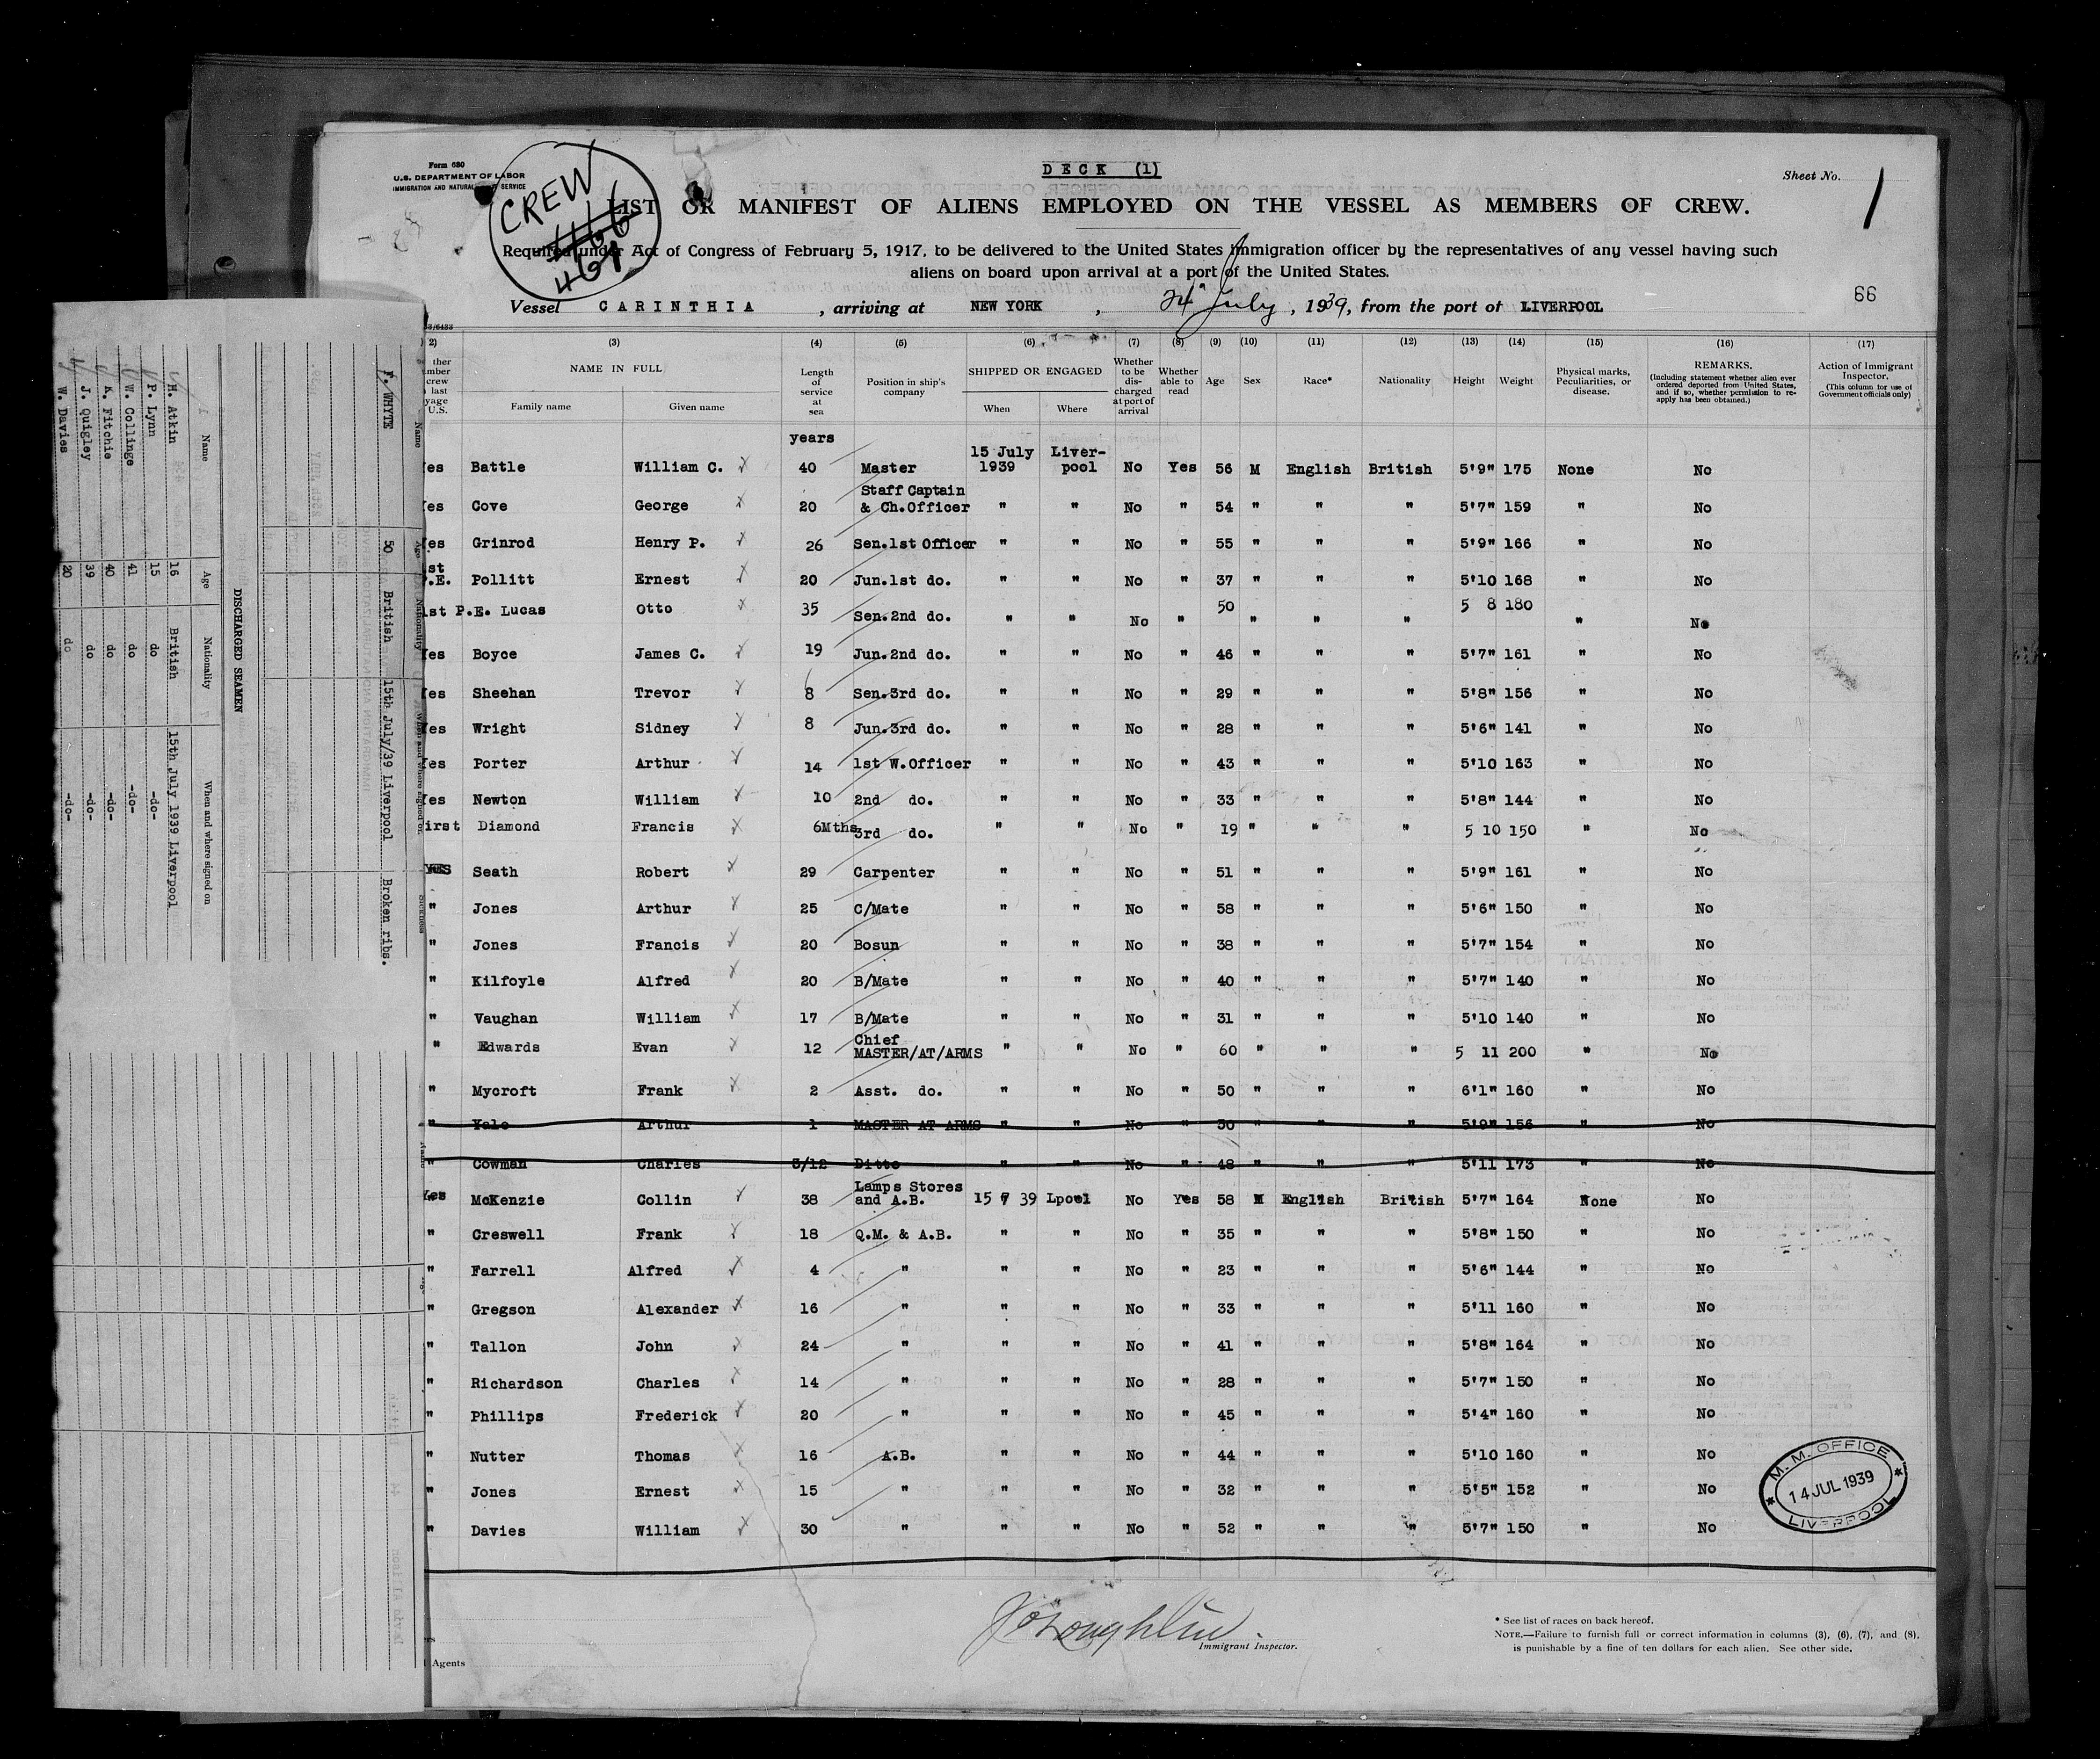 Form 680
U.S. DEPARTMENT OF LABOR
IMMIGRATION AND SERVICE
CREW
461
DECK (1)
Sheet No. 1
LIST OR MANIFEST OF ALIENS EMPLOYED ON THE VESSEL AS MEMBERS OF CREW.
Required under Act of Congress of February 5, 1917, to be delivered to the United States Immigration officer by the representatives of any vessel having such
aliens on board upon arrival at a port of the United States.
66
Vessel CARINTHIA, arriving at NEW YORK, 24 July, 1939, from the port of LIVERPOOL
2) (3) (4) (5) (6) (7) (8) (9) (10) (11) (12) (13) (14) (15) (16) (17)
NAME IN FULL
Family name Given name
Length of service at sea
Position in ship's company
SHIPPED OR ENGAGED
When Where
Whether to be discharged at port of arrival
Whether able to read
Age Sex Race* Nationality Height Weight
Physical marks, Peculiarities, or disease.
REMARKS.
(Including statement whether alien ever ordered deported from United States, and if so, whether permission to re-apply has been obtained.)
Action of Immigrant Inspector.
(This column for use of Government officials only)
years
es Battle William C. 40 Master 15 July 1939 Liver-pool No Yes 56 M English British 5'9" 175 None No
es Cove George 20 Staff Captain & Ch.Officer " " No " 54 " " " 5'7" 159 " No
es Grinrod Henry P. 26 Sen.1st Officer " " No " 55 " " " 5'9" 166 " No
st P.E. Pollitt Ernest 20 Jun.1st do. " " No " 37 " " " 5'10 168 " No
1st P.E. Lucas Otto 35 Sen.2nd do. " " No " 50 " " " 5 8 180 " No
es Boyce James C. 19 Jun.2nd do. " " No " 46 " " " 5'7" 161 " No
es Sheehan Trevor 8 Sen.3rd do. " " No " 29 " " " 5'8" 156 " No
es Wright Sidney 8 Jun.3rd do. " " No " 28 " " " 5'6" 141 " No
es Porter Arthur 14 1st W.Officer " " No " 43 " " " 5'10 163 " No
es Newton William 10 2nd do. " " No " 33 " " " 5'8" 144 " No
irst Diamond Francis 6Mths 3rd do. " " No " 19 " " " 5 10 150 " No
YES Seath Robert 29 Carpenter " " No " 51 " " " 5'9" 161 " No
" Jones Arthur 25 C/Mate " " No " 58 " " " 5'6" 150 " No
" Jones Francis 20 Bosun " " No " 38 " " " 5'7" 154 " No
" Kilfoyle Alfred 20 B/Mate " " No " 40 " " " 5'7" 140 " No
" Vaughan William 17 B/Mate " " No " 31 " " " 5'10 140 " No
" Edwards Evan 12 Chief MASTER/AT/ARMS " " No " 60 " " " 5 11 200 " No
" Mycroft Frank 2 Asst. do. " " No " 50 " " " 6'1" 160 " No
" Yale Arthur 1 MASTER AT ARMS " " No " 50 " " " 5'9" 156 " No
" Cowman Charles 3/12 Ditto " " No " 48 " " " 5'11 173 " No
Yes McKenzie Collin 38 Lamps Stores and A.B. 15 7 39 Lpool No Yes 58 M English British 5'7" 164 None No
" Creswell Frank 18 Q.M. & A.B. " " No " 35 " " " 5'8" 150 " No
" Farrell Alfred 4 " " " No " 23 " " " 5'6" 144 " No
" Gregson Alexander 16 " " " No " 33 " " " 5'11 160 " No
" Tallon John 24 " " " No " 41 " " " 5'8" 164 " No
" Richardson Charles 14 " " " No " 28 " " " 5'7" 150 " No
" Phillips Frederick 20 " " " No " 45 " " " 5'4" 160 " No
" Nutter Thomas 16 A.B. " " No " 44 " " " 5'10 160 " No
" Jones Ernest 15 " " " No " 32 " " " 5'5" 152 " No
" Davies William 30 " " " No " 52 " " " 5'7" 150 " No
M. M. OFFICE
14 JUL 1939
LIVERPOOL
Immigrant Inspector.
Agents
* See list of races on back hereof.
NOTE.—Failure to furnish full or correct information in columns (3), (6), (7), and (8),
is punishable by a fine of ten dollars for each alien. See other side.
Name Age Nationality When and where signed on Sickness
F. WHYTE 50 British 15th July/39 Liverpool Broken ribs.
DISCHARGED SEAMEN
Name Age Nationality When and where signed on
H. Atkin 16 British 15th July 1939 Liverpool
P. Lynn 15 do -do-
W. Collinge 41 do -do-
A. Fitchie 40 do -do-
J. Quigley 39 do -do-
W. Davies 20 do -do-